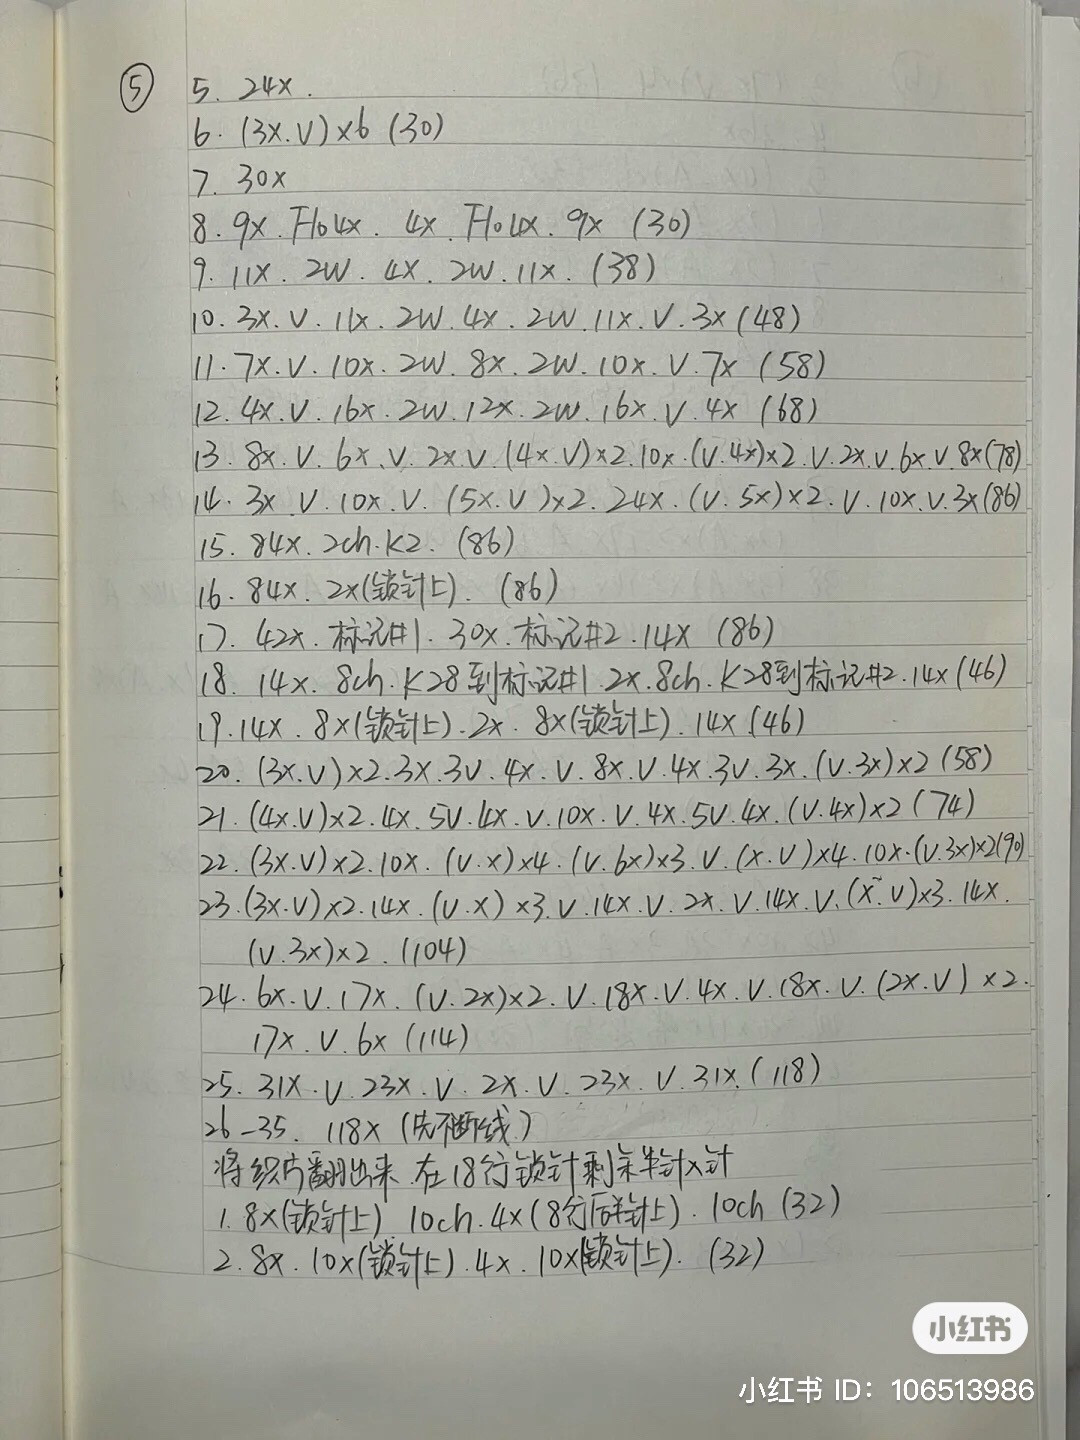 ⑤ 5. 24x.
6. (3x.V)x6 (30)
7. 30x
8. 9x. Flo4x. 4x. Flo4x. 9x (30)
9. 11x. 2W. 4x. 2W. 11x. (38)
10. 3x. V. 11x. 2W. 4x. 2W. 11x. V. 3x (48)
11. 7x. V. 10x. 2W. 8x. 2W. 10x. V. 7x (58)
12. 4x. V. 16x. 2W. 12x. 2W. 16x. V. 4x (68)
13. 8x. V. 6x. V. 2x. V. (4x.V)x2. 10x. (V.4x)x2. V. 2x. V. 6x. V 8x(78)
14. 3x. V. 10x. V. (5x.V)x2. 24x. (V. 5x)x2. V. 10x. V. 3x(86)
15. 84x. 2ch. K2. (86)
16. 84x. 2x(锁针上). (86)
17. 42x. 标记#1. 30x. 标记#2. 14x (86)
18. 14x. 8ch. K28到标记#1. 2x. 8ch. K28到标记#2. 14x(46)
19. 14x. 8x(锁针上). 2x. 8x(锁针上). 14x (46)
20. (3x.V)x2. 3x. 3V. 4x. V. 8x. V. 4x. 3V. 3x. (V.3x)x2 (58)
21. (4x.V)x2. 4x. 5V. 4x. V. 10x. V. 4x. 5V. 4x. (V.4x)x2 (74)
22. (3x.V)x2. 10x. (V.x)x4. (V.6x)x3. V. (x.V)x4. 10x. (V.3x)x2(90)
23. (3x.V)x2. 14x. (V.x)x3. V. 14x. V. 2x. V. 14x. V. (x.V)x3. 14x.
(V.3x)x2. (104)
24. 6x. V. 17x. (V.2x)x2. V. 18x. V. 4x. V. 18x. V. (2x.V)x2.
17x. V. 6x (114)
25. 31x. V. 23x. V. 2x. V. 23x. V. 31x. (118)
26-35. 118x (先不断线)
将织片翻出来. 在18行锁针剩余半针x针
1. 8x(锁针上) 10ch. 4x(8行后半针上). 10ch (32)
2. 8x. 10x(锁针上). 4x. 10x(锁针上). (32)
小红书
小红书 ID: 106513986